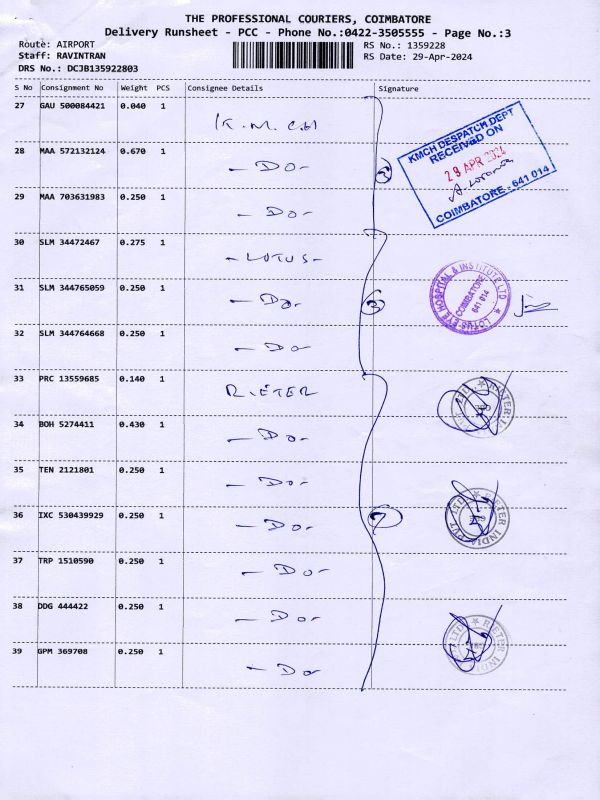 THE PROFESSIONAL COURIERS, COIMBATORE
Delivery Runsheet - PCC - Phone No.:0422-3505555 - Page No.:3
Route: AIRPORT RS No.: 1359228
Staff: RAVINTRAN RS Date: 29-Apr-2024
DRS No.: DCJB135922803
S No Consignment No Weight PCS Consignee Details Signature
27 GAU 500084421 0.040 1 K.M.CH
28 MAA 572132124 0.670 1 - Do -
29 MAA 703631983 0.250 1 - Do -
KMCH DESPATCH DEPT
RECEIVED ON
29 APR 2024
COIMBATORE - 641 014
30 SLM 34472467 0.275 1 - LOTUS -
31 SLM 344765059 0.250 1 - Do - 3
32 SLM 344764668 0.250 1 - Do
LOTUS EYE HOSPITAL & INSTITUTE LTD
COIMBATORE
641 014
33 PRC 13559685 0.140 1 RIETER
34 BOH 5274411 0.430 1 - Do -
35 TEN 2121801 0.250 1 - Do -
36 IXC 530439929 0.250 1 - Do - 7
RIETER INDIA PVT LTD
37 TRP 1510590 0.250 1 - Do -
38 DDG 444422 0.250 1 - Do -
39 GPM 369708 0.250 1 - Do